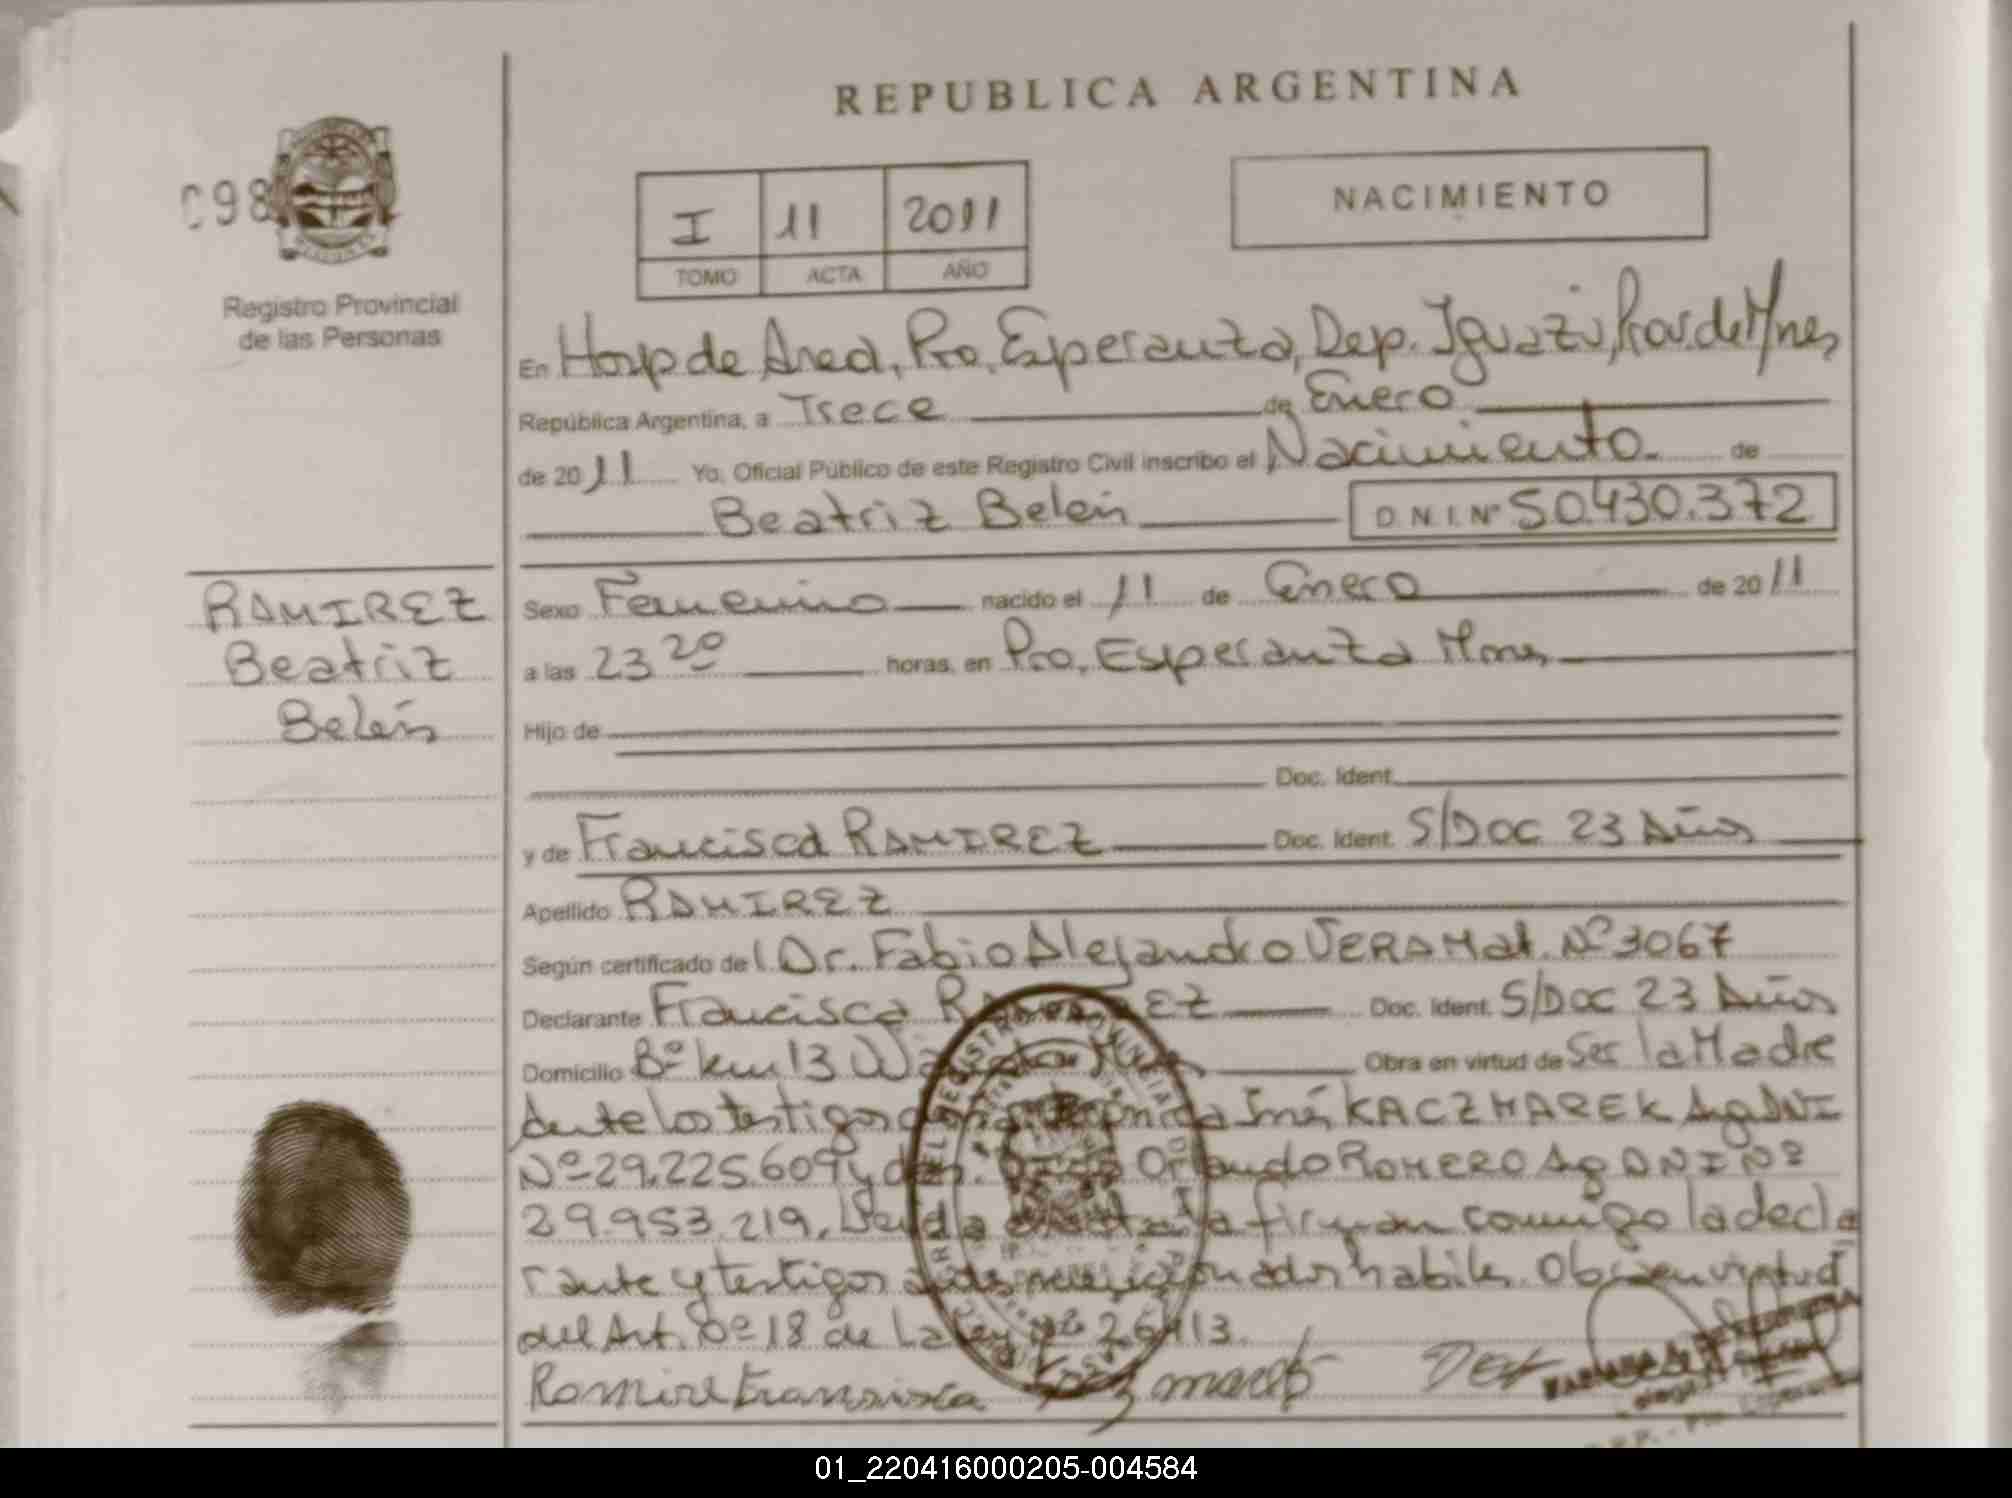 REPUBLICA ARGENTINA
098
Registro Provincial
de las Personas
I 11 2011
TOMO ACTA AÑO
NACIMIENTO
En Hosp de Area, Pto. Esperanza, Dep. Iguazú, Prov. de Mnes
República Argentina, a Trece de Enero
de 2011 Yo, Oficial Público de este Registro Civil inscribo el Nacimiento de
Beatriz Belén D N I. Nº 50.430.372
RAMIREZ
Beatriz
Belén
Sexo Femenino nacido el 11 de Enero de 2011
a las 23 20 horas, en Pto. Esperanza Mnes
Hijo de
Doc. Ident.
y de Francisca RAMIREZ Doc. Ident. S/DOC 23 Años
Apellido RAMIREZ
Según certificado del Dr. Fabio Alejandro VERA Mat. Nº 3067
Declarante Francisca RAMIREZ Doc. Ident. S/DOC 23 Años
Domicilio Bº km 13 Obra en virtud de Ser la Madre
Ante los testigos Inés KACZMAREK Arg DNI
Nº 29.225.609 y Orlando ROMERO Arg DNI Nº
29.953.219. Leida firman comigo la decla
rante y testigos habiles. Obra en virtud
del Art. Nº 18 de la Ley Nº 26.413.
Ramire Fransisca
01_220416000205-004584